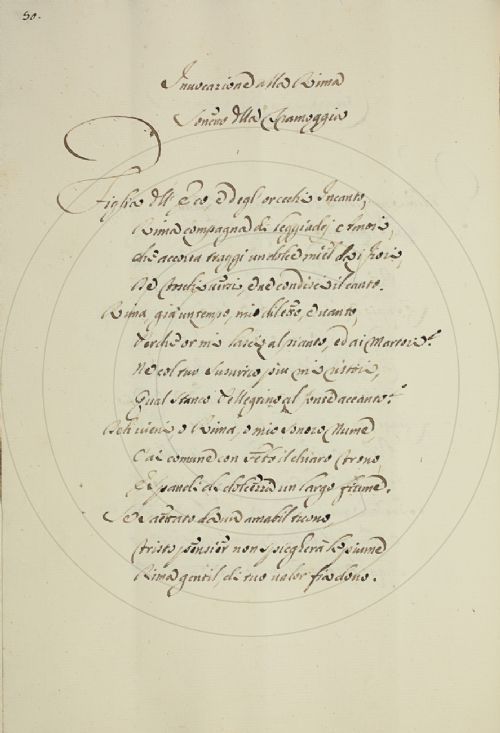 50.
Invocazione alla Rima
Sonetto della Gramoggia
Figlia dell' Eco, e degl' orecchi Incanto,
Rima compagna di leggiadri Amori,
Che accorta traggi un dolce miel dai fiori,
E ne condisci il canto.
Rima già un tempo, mio diletto, e vanto,
Perche or mi lasci al pianto, ed ai Martori?
Ne col tuo susurro più mi ristori,
Qual stanco Pellegrino al fonte accanto?
Deh vieni o Rima, o mio sonoro Nume,
E ai comune con Febo il chiaro trono,
E spandi di dolcezza un largo fiume.
Se aitato da un amabil suono,
Tristo pensier non spiegherà le piume
Rima gentil, di tuo valor fia dono.